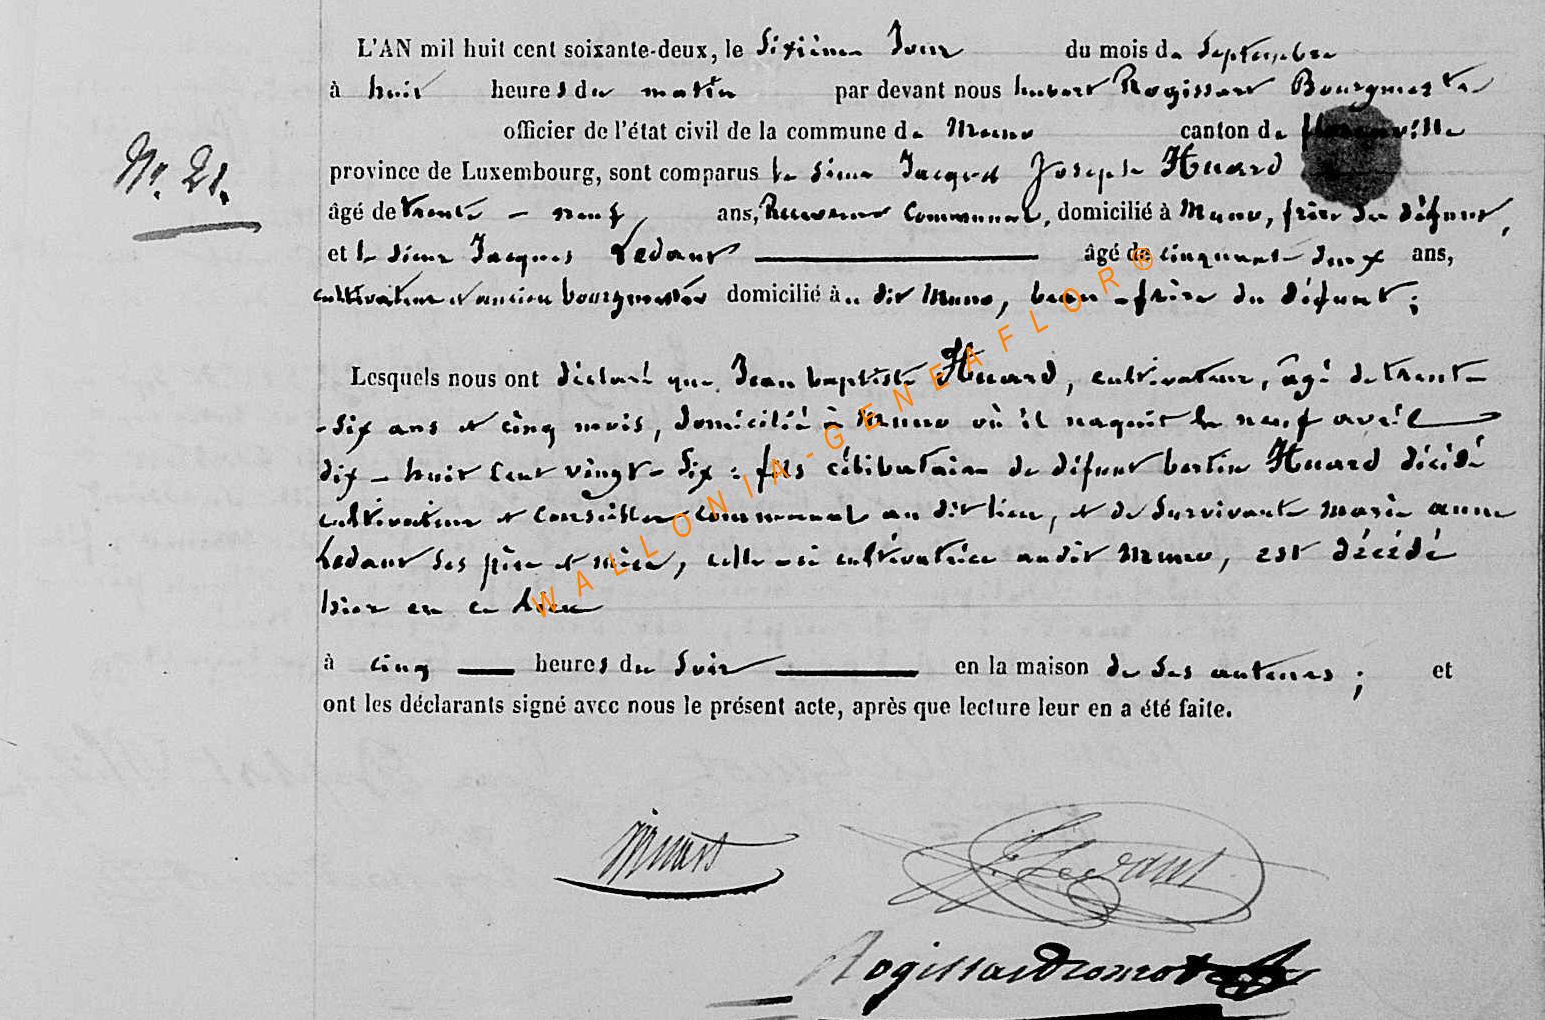 L'AN mil huit cent soixante-deux, le Sixième Jour du mois de Septembre
à huit heures du matin par devant nous hubert Rogissart Bourgmestre
officier de l'état civil de la commune de Muno canton de florenville
N°. 21.
province de Luxembourg, sont comparus le sieur Jacques Joseph Huard
âgé de trente - neuf ans, Receveur Communal, domicilié à Muno, frère du défunt,
et le sieur Jacques Ledant âgé de cinquante deux ans,
cultivateur et ancien bourgmestre domicilié à .. dit Muno, beau-frère du défunt ;
Lesquels nous ont déclaré que Jean baptiste Huard, cultivateur, âgé de trente
-six ans et cinq mois, domicilié à Muno où il naquit le neuf avril
dix - huit Cent vingt-Six : fils célibataire de défunt bertin Huard décédé
cultivateur et Conseiller Communal au dit lieu, et de Survivante marie anne
Ledant Ses père et mère, celle-ci cultivatrice audit Muno, est décédé
hier en ce lieu
à cinq heures du Soir en la maison de Ses auteurs ; et
ont les déclarants signé avec nous le présent acte, après que lecture leur en a été faite.
WALLONIA-GENEAFLOR®
JLedant